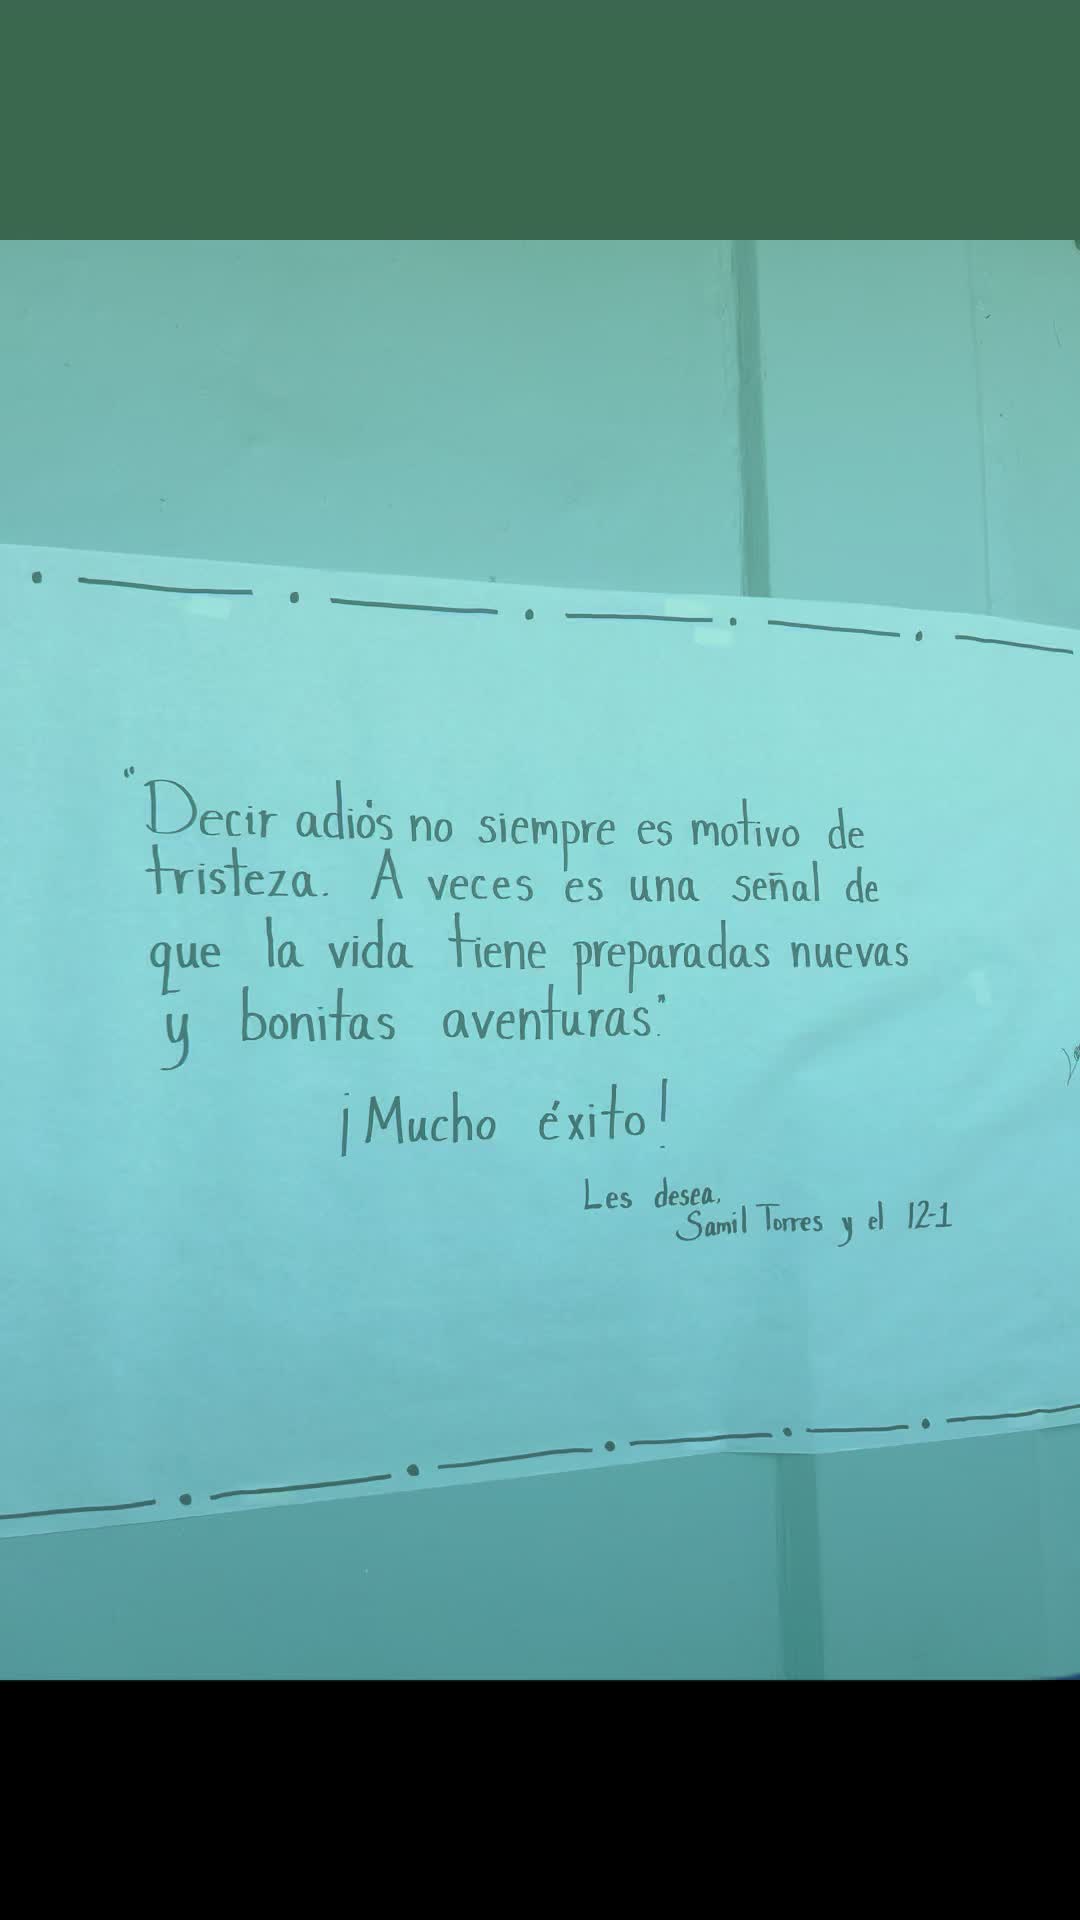 "Decir adiós no siempre es motivo de
tristeza. A veces es una señal de
que la vida tiene preparadas nuevas
y bonitas aventuras."
¡Mucho éxito!
Les desea,
Samil Torres y el 12-1